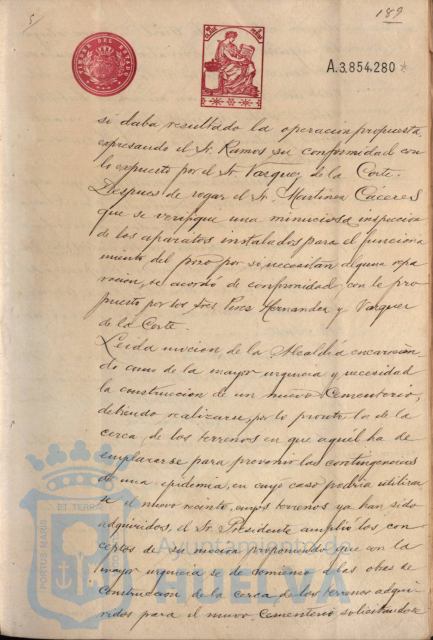 189
TIMBRE DEL ESTADO
A.3.854.280
si daba resultado la operacion propuesta,
expresando el Sr. Ramos su conformidad con
lo expuesto por el Sr. Vazquez de la Corte.
Despues de rogar el Sr. Martinez Cáceres
que se verifique una minuciosa inspeccion
de los aparatos instalados para el funciona
miento del pozo por si necesitan alguna repa
racion, se acordó de conformidad con lo pro
puesto por los Sres Hernandez y Vazquez
de la Corte.
Leida mocion de la Alcaldía encarecien
do como de la mayor urgencia y necesidad
la construccion de un nuevo Cementerio,
debiendo realizarse, por lo pronto la de la
cerca de los terrenos en que aquél ha de
emplazarse para prevenir las contingencias
de una epidemia, en cuyo caso podria utilizar
se el nuevo recinto, cuyos terrenos ya han sido
adquiridos, el Sr. Presidente amplió los con
ceptos de su mocion proponiendo que con la
mayor urgencia se dé comienzo a las obras de
construccion de la cerca de los terrenos adqui
ridos para el nuevo Cementerio solicitandose
PORTUS MARIS ET TERRAE
Ayuntamiento de
HUELVA